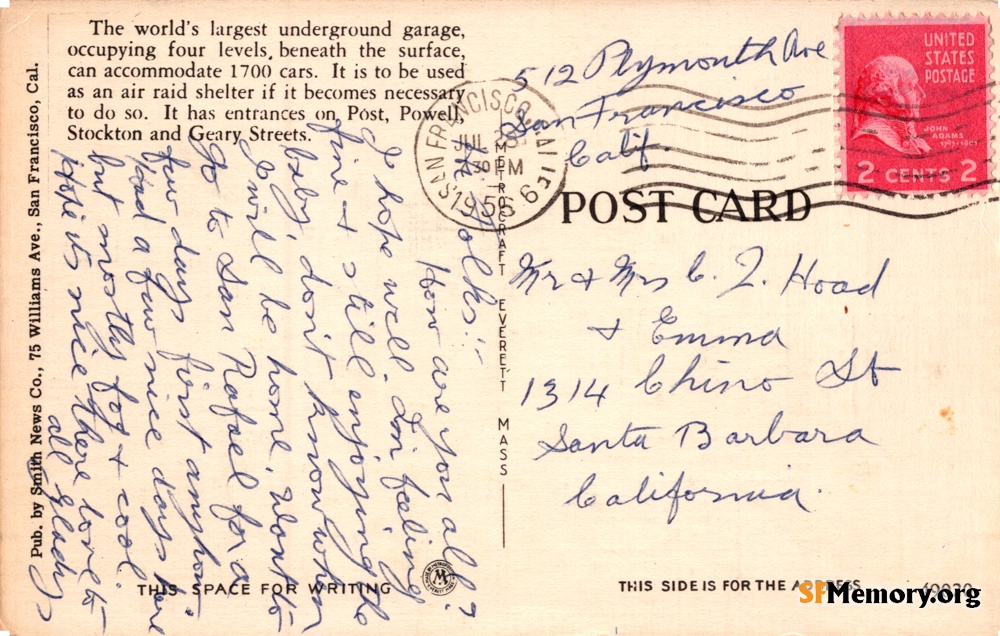 The world's largest underground garage,
occupying four levels, beneath the surface,
can accommodate 1700 cars. It is to be used
as an air raid shelter if it becomes necessary
to do so. It has entrances on Post, Powell,
Stockton and Geary Streets.
Pub. by Smith News Co., 75 Williams Ave., San Francisco, Cal.
Hi Folks:-
How are you all?
I hope well. I'm feeling
fine & still enjoying the
baby, don't know when
I will be home. Want to
go to San Rafael for a
few days first anyhow
Had a few nice days here
but mostly fog & cool.
hope its nice there love to
all Gladys
THIS SPACE FOR WRITING
METROCRAFT EVERETT MASS
SAN FRANCISCO CALIF.
JUL
30 PM
1956
512 Plymouth Ave
San Francisco
Calif.
UNITED
STATES
POSTAGE
JOHN
ADAMS
1797-1801
2 CENTS 2
POST CARD
Mr & Mrs C. J. Hoad
& Emma
1314 Chino St
Santa Barbara
California.
THIS SIDE IS FOR THE ADDRESS
SFMemory.org